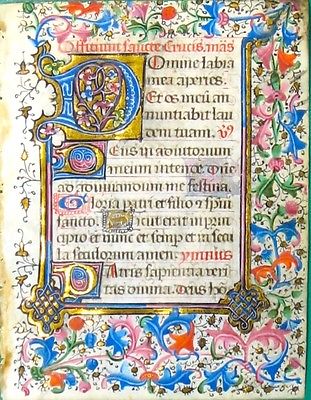 Officium sancte Crucis. mās
Domine labia
mea aperies.
Et os meū an
nuntiabit lau
dem tuam. V
Deus in adiutorium
meum intende. Dne
ad adiuvandum me festina.
Gloria patri et filio et spiri
sancto. Sicut erat in prin
cipio et nunc et semp et in secu
la seculorum amen. ymnus
Patris sapientia veri
tas divina. deus ho